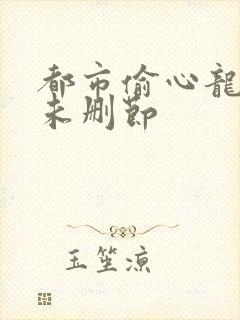 都市偷心龍
未删節
玉笙涼